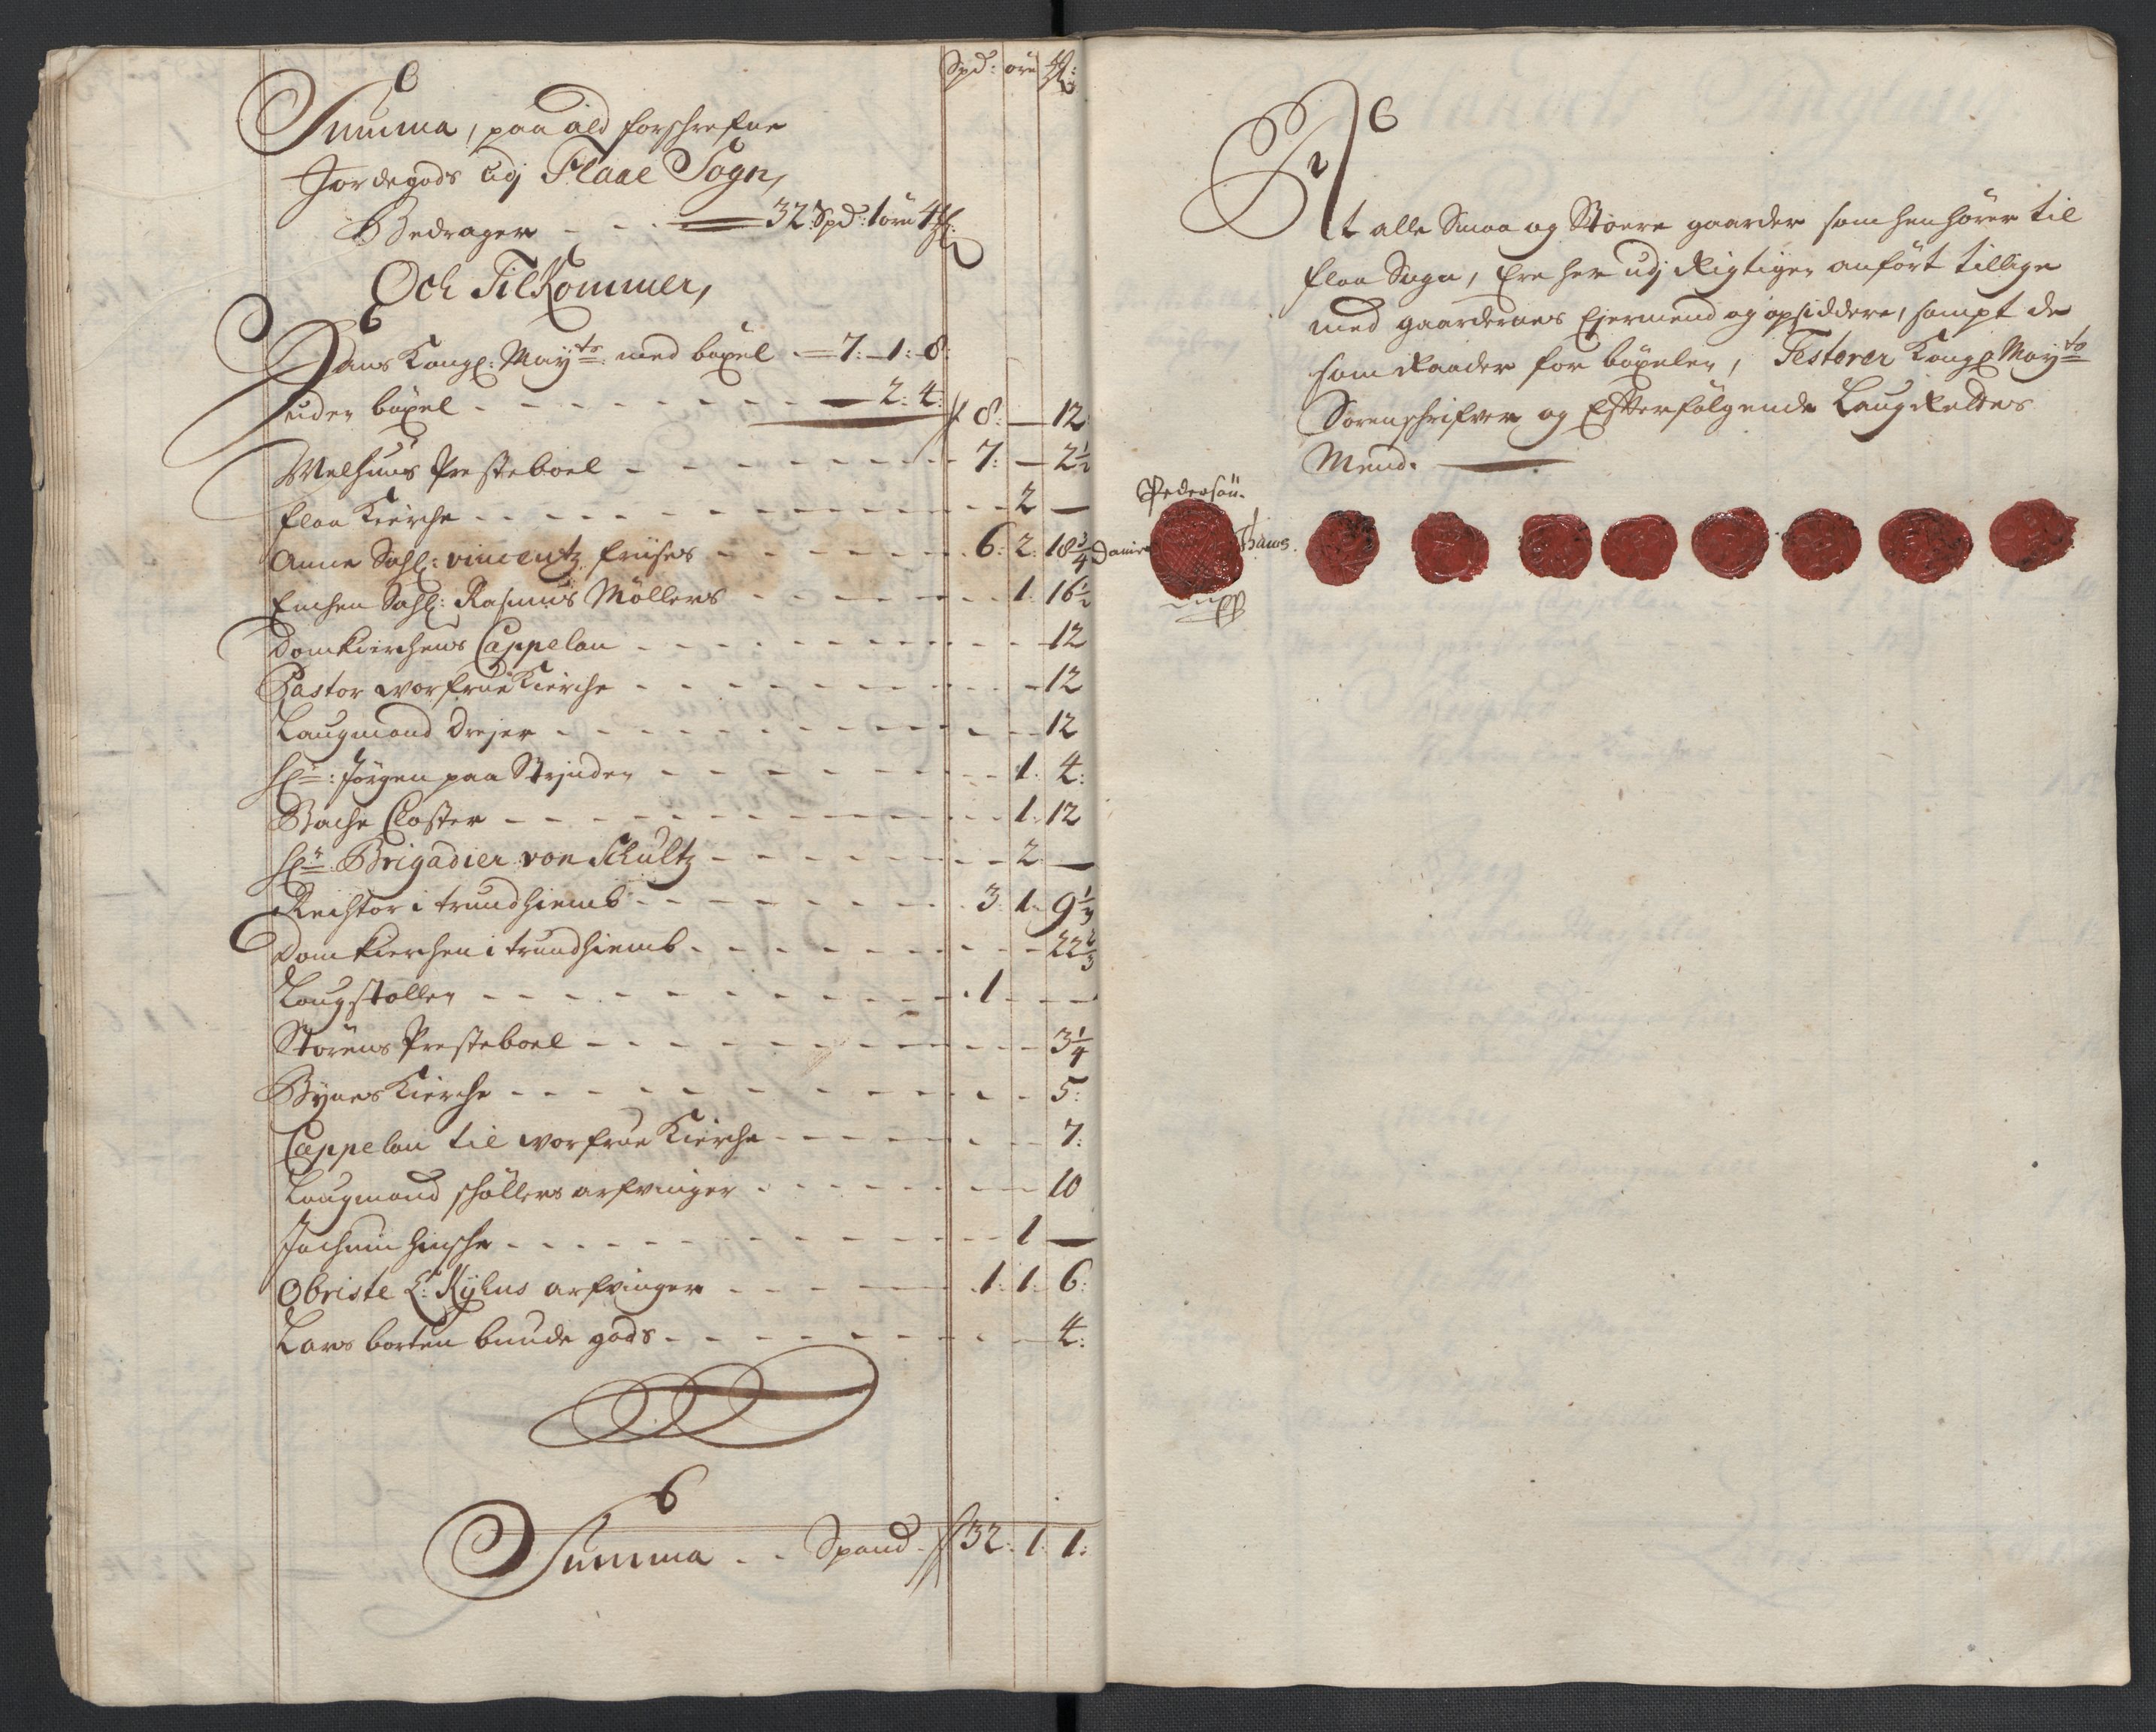 Spd: öre ℔:
Summa, paa ald forschrefne
Jordegods udj Flaae Sogn,
Bedrager - - - 32 Spd: 1 öre 4 ℔:
Och Tilkommer,
Hans Kongl: Mayts: med böxel - 7: 1: 8:
uden böxel - - - 2: 4: 8: — 12
Melhuus Presteboel - - - 7: — 2½
Flaa Kierche - - - 2 —
Anne Sahl: vincentz friises - - - 6: 2: 18¾
Enchen Sahl: Rasmus Möllers - - - 1: 16½
Domkierchens Cappelan - - - 12
Pastor worfrue Kierche - - - 12
Laugmand Drejer - - - 12
Hr: Jörgen paa Strinden - - - 1: 4:
Bache Closter - - - 1: 12
Hr: Brigadier von Schultz - - - 2 —
Rechtor i trundhiemb - - - 3: 1: 9⅓
Domkierchen i trundhiemb - - - 22⅔
Laugstollen - - - 1 - -
Störens Presteboel - - - 3¼
Bynes Kierche - - - 5:
Cappelan til worfrue Kierche - - - 7:
Laugmand schöllers arfvinger - - - 10
Jachum hinsche - - - 1 —
Obriste L: Kyhns arfvinger - - - 1: 1: 6:
Lars borten bunde gods - - - 4:
Summa - - Spand 32: 1: 1:
At alle Smaa og Stoere gaarder som henhörer til
Flaa Sogn, Ere her udj Rigtigen anfört tillige
med gaardernes Ejermend og opsiddere, sampt de
som Raader for böxelen, Testerer Kongl Mayts
Sorenschrifver og Efterfölgende Laugrettes
Mend.
Pedersön.
Hans.